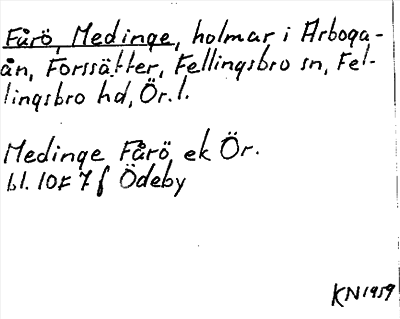 Fårö, Medinge, holmar i Arboga-
ån, Forssätter, Fellingsbro sn, Fel-
lingsbro hd, Ör. l.
Medinge Fårö ek Ör.
bl. 10F 7f Ödeby
KN 1959